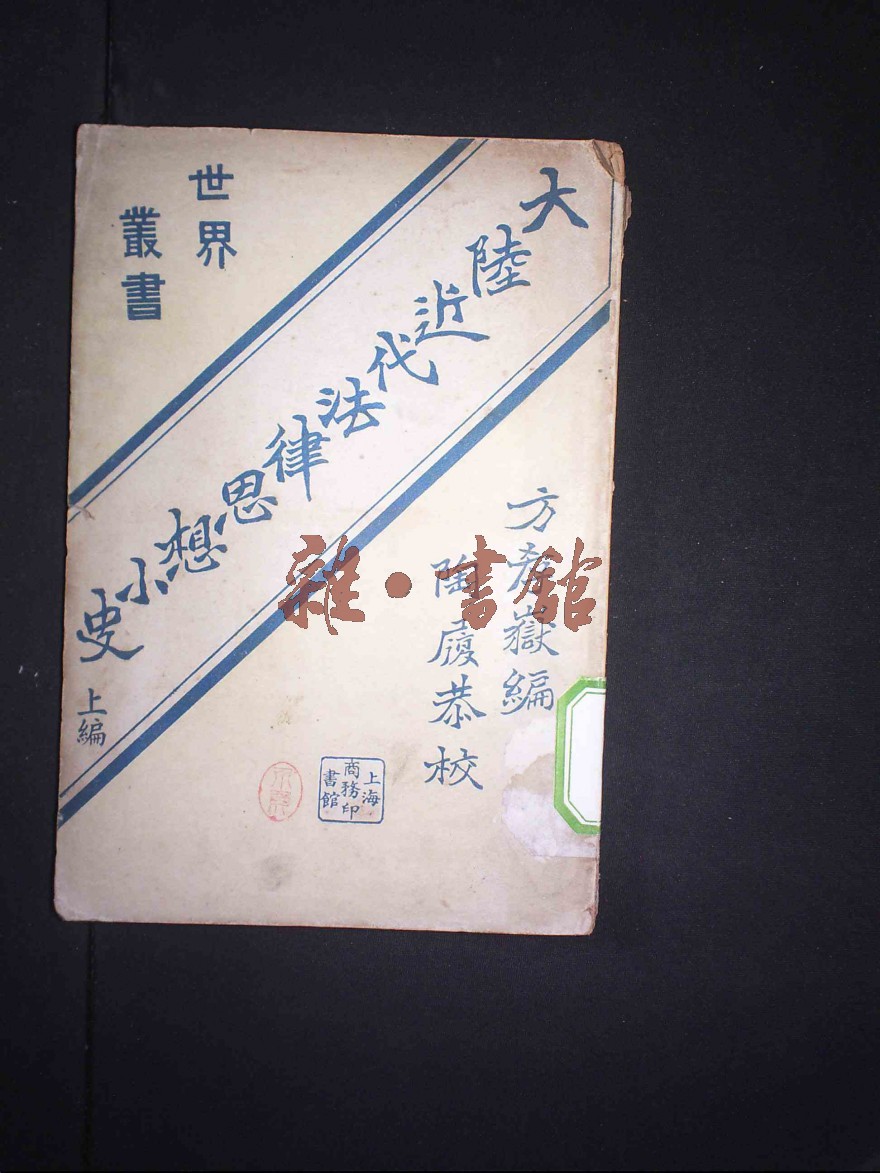 世界
叢書
大陸近代法律思想小史
上編
方孝嶽編
陶履恭校
上海
商務印
書館
雜·書館